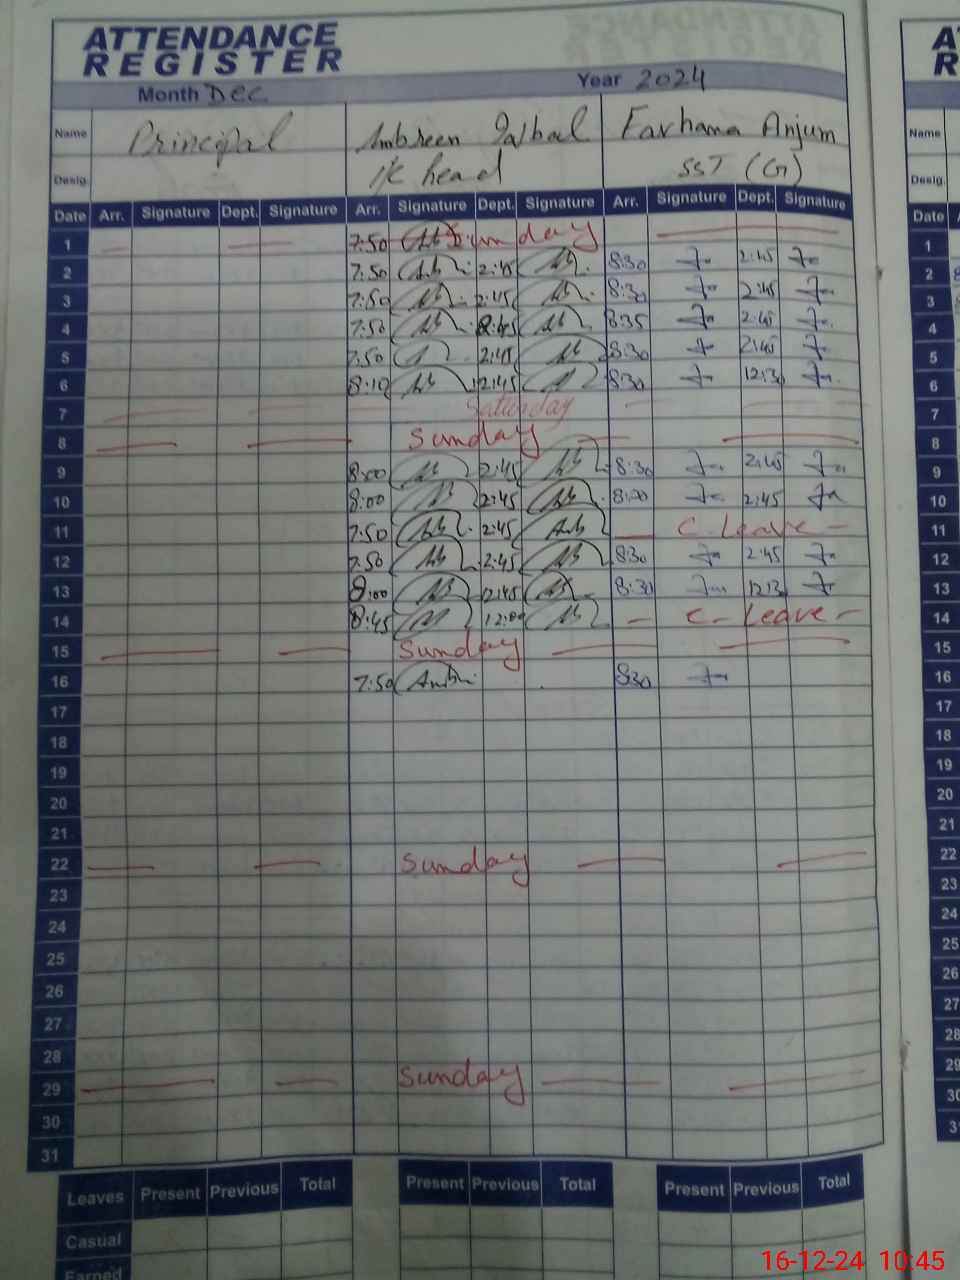 ATTENDANCE
REGISTER
Month Dec Year 2024
Name Principal Ambreen Iqbal Farhana Anjum
Desig. i/c head SST (G)
Date Arr. Signature Dept. Signature Arr. Signature Dept. Signature Arr. Signature Dept. Signature
1 7:50 Sunday
2 7:50 2:45 8:30 2:45
3 7:50 2:45 8:30 2:45
4 7:50 2:45 8:35 2:45
5 7:50 2:45 8:30 2:45
6 8:10 12:45 8:30 12:30
7 Saturday
8 Sunday
9 8:00 2:45 8:30 2:45
10 8:00 2:45 2:45
11 7:50 2:45 C. Leave
12 7:50 2:45 8:30 2:45
13 8:00 12:45 8:30
14 8:45 12:00 C- Leave
15 Sunday
16 7:50 830
17
18
19
20
21
22 Sunday
23
24
25
26
27
28
29 Sunday
30
31
Leaves Present Previous Total Present Previous Total Present Previous Total
Casual
Earned
A
R
Name
Desig.
Date
1
2
3
4
5
6
7
8
9
10
11
12
13
14
15
16
17
18
19
20
21
22
23
24
25
26
27
28
29
30
16-12-24 10:45